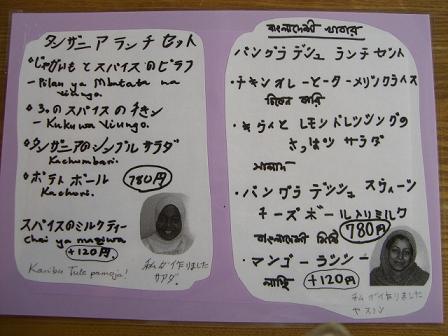 タンザニア ランチ セット
・じゃがいも と スパイス の ピラフ
- Pilau ya Mbatata na viungo.
・3つの スパイス の チキン
- Kukuwa Viungo.
・タンザニアの シンプル サラダ
Kachumbari.
・ポテト ボール 780円
Kachori.
スパイスのミルクティー
chai ya maziwa
+120円
Karibu Tule pamoja!
私が作りました
サアダ。
বাংলাদেশী খাবার
バングラデシュ ランチ セット
・チキンカレーとターメリックライス
চিকেন কারি
レモンドレッシングの
さっぱり サラダ
সালাদ
・バングラデシュ スウィーツ
チーズボール入りミルク
780円
বাংলাদেশী মিষ্টি
・マンゴー ラッシー
লাচ্ছি
+120円
私が作りました
ヤスミン